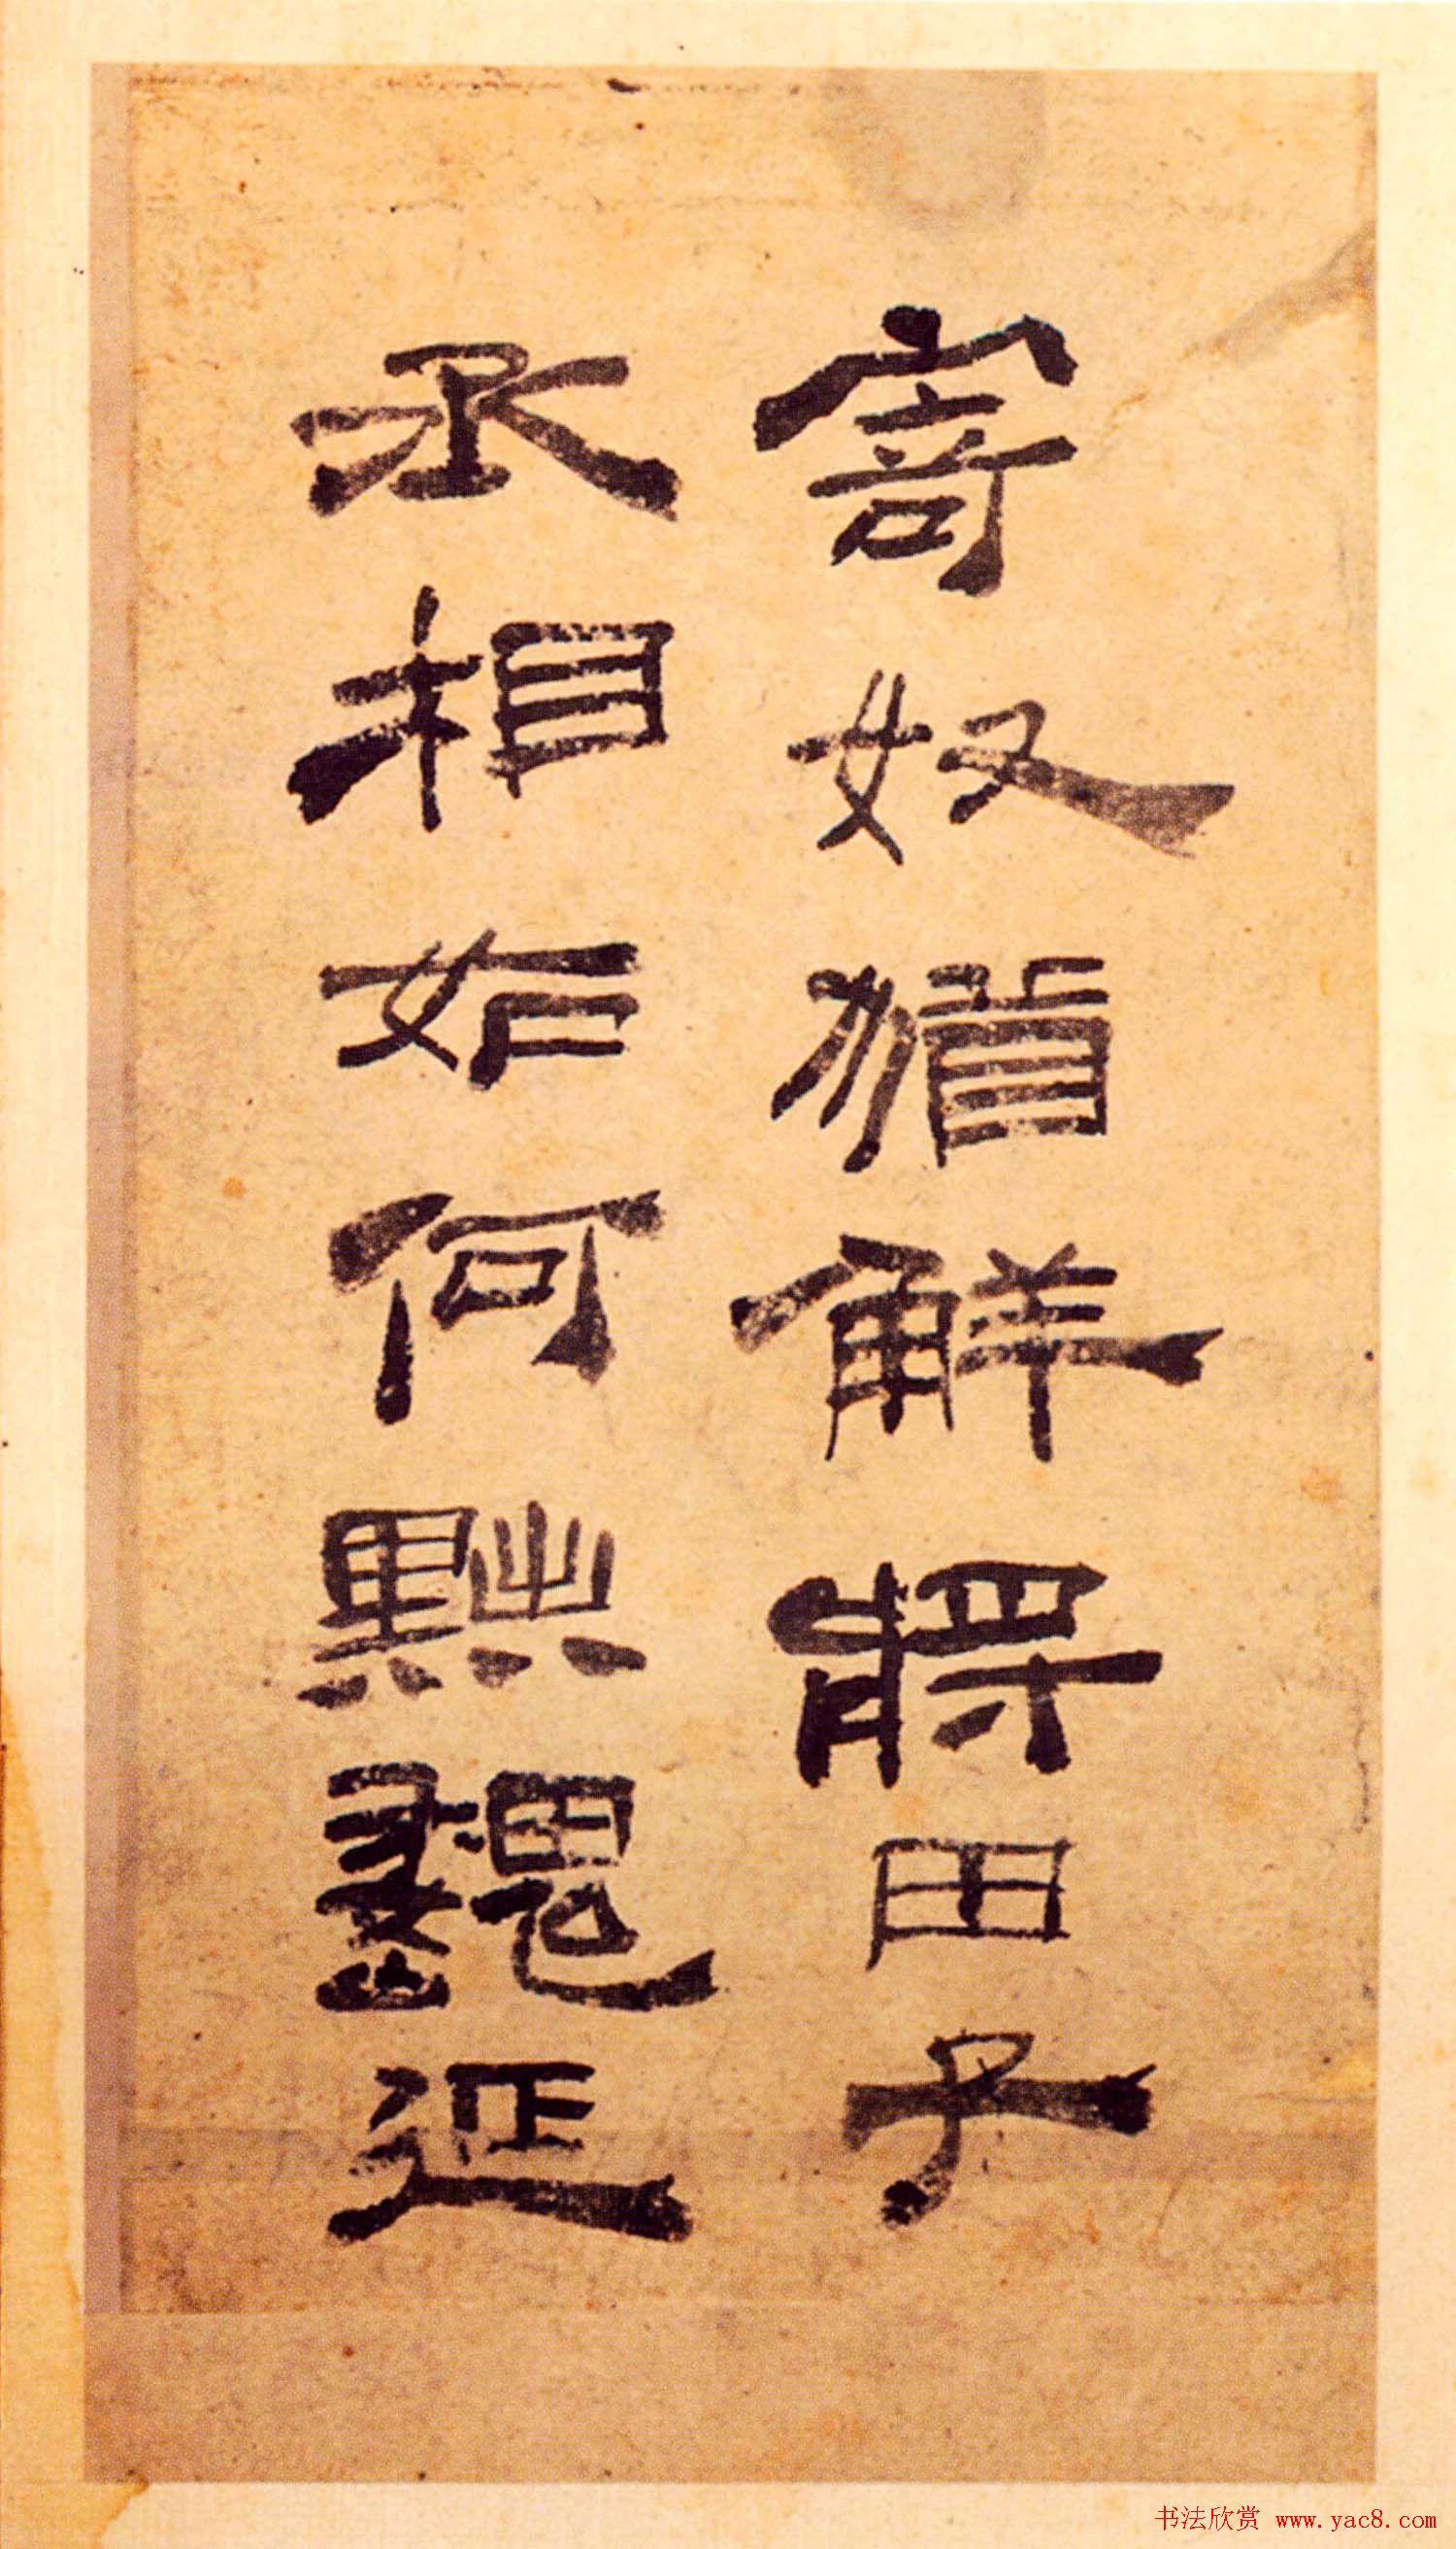 寄奴猶觧將田子
丞相如何黜魏延
书法欣赏 www.yac8.com